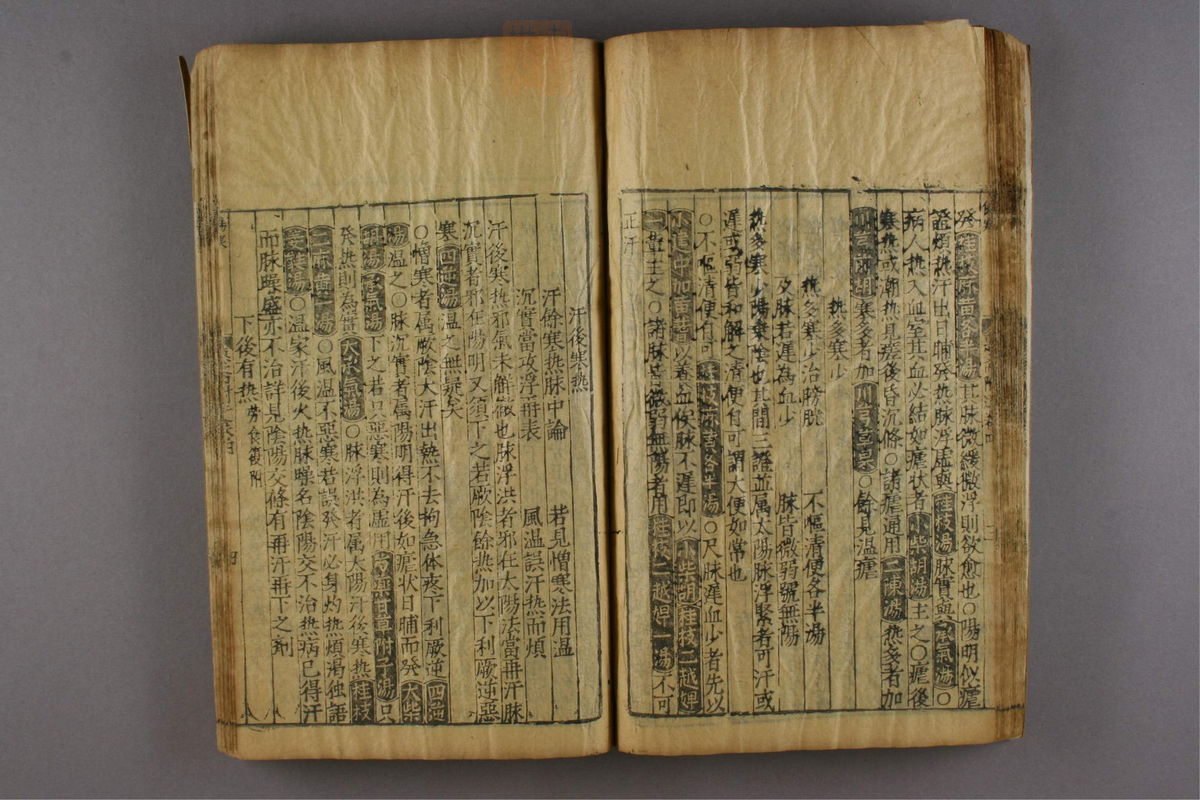 發桂枝麻黃各半湯其脉微緩微浮則欲愈也○陽明似瘧
證煩熱汗出日晡發熱脉浮虛與桂枝湯脉實與承氣湯○
病人熱入血室其血必結如瘧狀者小柴胡湯主之○瘧後
寒熱或潮熱見瘥後昏沉條○諸瘧通用二陳湯熱多者加
川芎前胡寒多者加川芎草果○餘見溫瘧
熱多寒少
熱多寒少治膀胱 不嘔清便各半湯
及脉若遲為血少 脉皆微弱號無陽
熱多寒少陽乘陰也其間三證並属太陽脉浮緊者可汗或
遲或弱皆和解之清便自可謂大便如常也
○不嘔清便自可桂枝麻黃各半湯○尺脉遲血少者先以
小建中加黃芪以養血候脉不遲即以小柴胡桂枝二越婢
一主之○諸脉皆微弱無陽者用桂枝二越婢一湯不可
正汗
汗後寒熱
汗餘寒熱脉中論 若見憎寒法用溫
沉實當攻浮再表 風溫誤汗熱而煩
汗後寒熱邪氣未解徹也脉浮洪者邪在太陽法當再汗脉
沉實者邪在陽明又須下之若厥陰餘熱加以下利厥逆惡
寒四逆湯溫之無疑矣
○憎寒者属厥陰大汗出熱不去拘急体疼下利厥逆四逆
湯溫之○脉沉實者属陽明得汗後如瘧狀日晡而發大柴
胡湯承氣湯下之若只惡寒則為虛用芍藥甘草附子湯只
發熱則為實大承氣湯○脉浮洪者属太陽汗後寒熱桂枝
二麻黃一湯○風溫不惡寒若誤發汗必身灼熱煩渴独語
葳蕤湯○溫家汗後火熱脉躁名陰陽交不治熱病已得汗
而脉躁盛亦不治詳見陰陽交條有再汗再下之劑
下後有熱 勞食復附